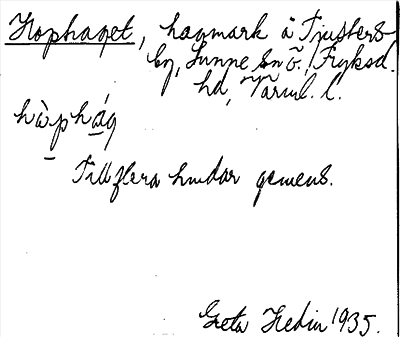 Hophaget, hagmark å Tjusters
by, Sunne sn ö., Fryksd.
hd, Värml. l.
hòphág
Till flera hmdar gemens.
Greta Hedin 1935.